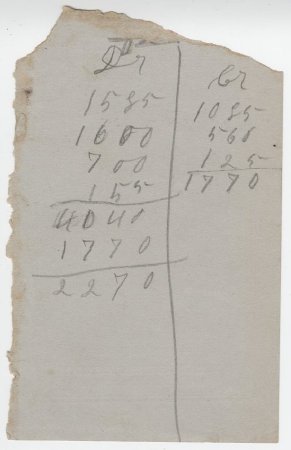 Dr
1585
1600
700
155
4040
1770
2270
Cr
1085
560
125
1770